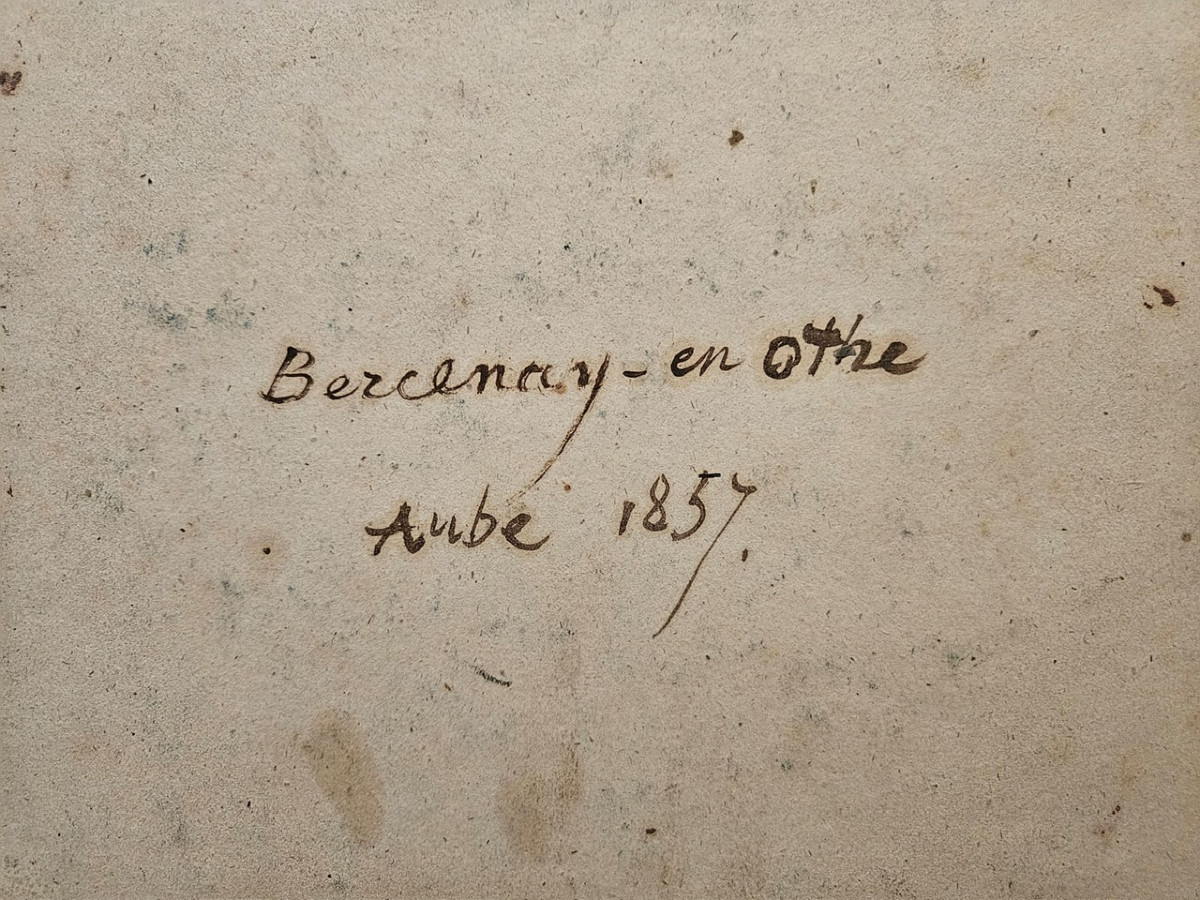 Bercenay-en Othe
Aube 1857.